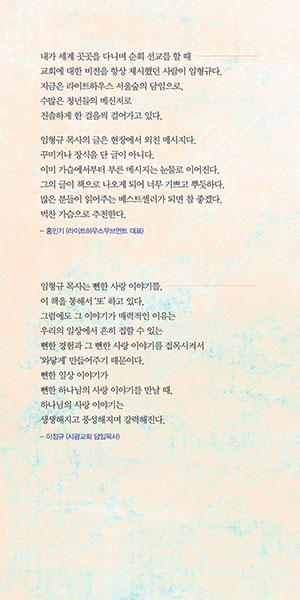 내가 세계 곳곳을 다니며 순회 선교를 할 때
교회에 대한 비전을 항상 제시했던 사람이 임형규다.
지금은 라이트하우스 서울숲의 담임으로,
수많은 청년들의 메신저로
진솔하게 한 걸음씩 걸어가고 있다.
임형규 목사의 글은 현장에서 외친 메시지다.
꾸미거나 장식을 단 글이 아니다.
이미 가슴에서부터 부른 메시지는 눈물로 이어진다.
그의 글이 책으로 나오게 되어 너무 기쁘고 뿌듯하다.
많은 분들이 읽어주는 베스트셀러가 되면 참 좋겠다.
벅찬 가슴으로 추천한다.
– 홍민기 (라이트하우스무브먼트 대표)
임형규 목사는 뻔한 사랑 이야기를,
이 책을 통해서 '또' 하고 있다.
그럼에도 그 이야기가 매력적인 이유는
우리의 일상에서 흔히 접할 수 있는
뻔한 경험과 그 뻔한 사랑 이야기를 접목시켜서
'와닿게' 만들어주기 때문이다.
뻔한 일상 이야기가
뻔한 하나님의 사랑 이야기를 만날 때,
하나님의 사랑 이야기는
생생해지고 풍성해지며 강력해진다.
– 이정규 (시광교회 담임목사)